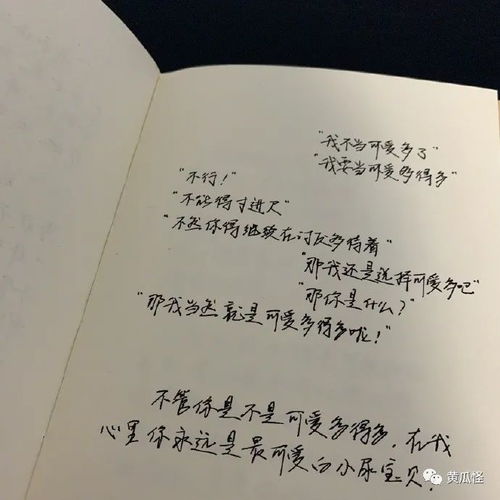 "我不当可爱多了"
"我要当可爱多得多"
"不行!"
"不能得寸进尺"
"不然你得继续在讨厌多待着"
"那我还是选择可爱多吧"
"那你是什么?"
"那我当然就是可爱多得多啦!"
不管你是不是可爱多得多,在我
心里你永远是最可爱的小尿宝贝.
黄瓜怪